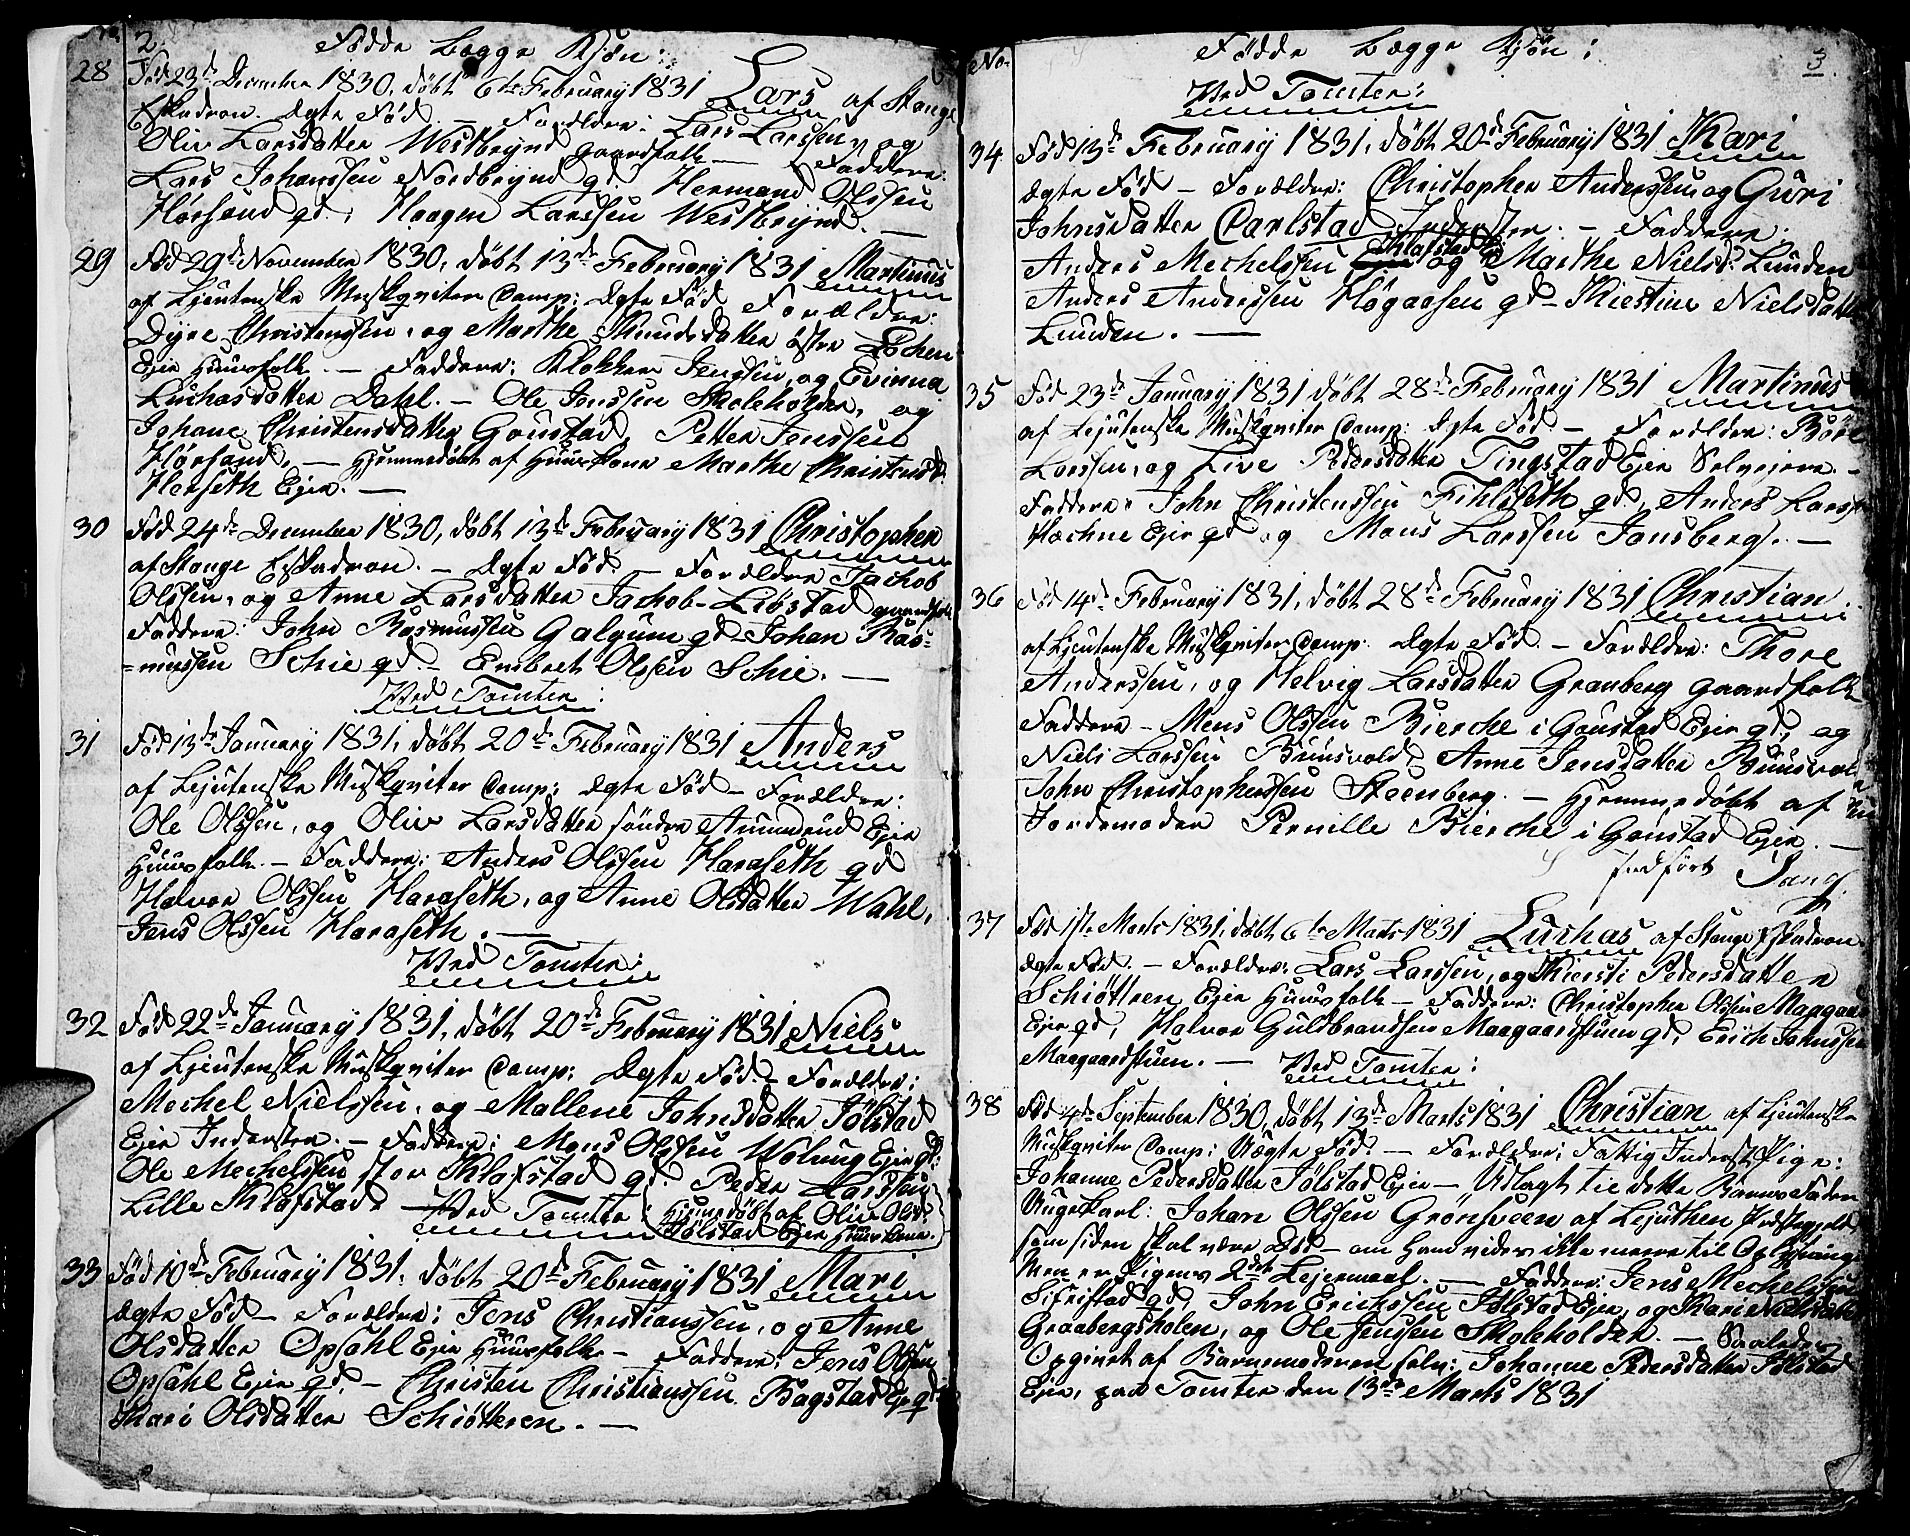 2.
Fødde begge Kjøn:
28 Fød 23de December 1830, døbt 6te February 1831 Lars af Stange
Eskadron. Ægte Fød. – Forældre: Lars Larssen, og
Oliv Larsdatter Westbrynd gaardfolk – Faddere:
Lars Johanssen Nordbrynd gd. Hermand Olssen
Hørsand gd, Haagen Larssen Westbrynd. –
29 Fød 29de November 1830, døbt 13de February 1831 Martinus
af Ljutenske Muskqviter Comp: Ægte Fød Forældre:
Dyre Christenssen, og Marthe Amundsdatter østre Lochen
Ejer Huusfolk. – Faddere: Klokker Jenssen, og Evinna
Luchasdatter Dahl. – Ole Jenssen Skoleholder, og
Johane Christensdatter Gonstad, Petter Jenssen
Hørsand, – Hjemmedøbt af Huuskone Marthe Christensd.
Herseth Ejer. –
30 Fød 24de December 1830, døbt 13de February 1831 Christopher
af Stange Eskadron. – Ægte Fød – Forældre Jachob
Olssen, og Anne Larsdatter Jachob-Liøstad gaardfolk
Faddere: John Rasmussen Galgum gd – Johan Ras-
=mussen Schie gd. – Embret Olssen Schie. –
Ved Tomter:
31 Fød 13de January 1831, døbt 20de February 1831 Anders
af Ljutenske Muskqviter Comp: Ægte Fød – Forældre:
Ole Olssen, og Oliv Larsdatter søndre Ammerud Ejer
Huusfolk. – Faddere: Anders Olssen Haraseth gd
Halvor Olssen Haraseth, og Anne Olsdatter Wahl,
Jens Olssen Haraseth. –
Ved Tomter:
32 Fød 22de January 1831, døbt 20de February 1831 Niels
af Ljutenske Muskqviter Comp: Ægte Fød – Forældre:
Mechel Nielssen, og Mallene Johnsdatter Jølstad
Ejer Inderster. – Faddere: Mons Olssen Wolung Ejer gd:
Ole Mechelssen stor Sklofstad gd. Peder Larssen
Lille Sklofstad. – Ved Tomter: Hjemmedøbt af Oliv Olsd.
Jølstad Ejer Huuskone.
33 Fød 10de February 1831, døbt 20de February 1831 Mari
Ægte Fød – Forældre: Jens Christianssen, og Anne
Olsdatter Opsahl Ejer Huusfolk – Faddere: Jens Olssen
Opsahl Ejer gd, – Christen Christianssen Bagstad Ejer gd
Kari Olsdatter Schiøtteren. –
No.
Fødde begge Kjøn:
3.
Ved Tomter:
34 Fød 13de February 1831, døbt 20de February 1831 Kari
Ægte Fød – Forældre: Christopher Anderssen og Guri
Johnsdatter Carlstad Inderster. – Faddere:
Anders Mechelssen Sklofstad og Marthe Nielsd: Lunden
Anders Anderssen Høgaasen gd – Kiestine Nielsdatter
Lunden. –
35 Fød 23de January 1831 døbt 28de February 1831 Martinus
af Ljutenske Muskqviter Comp: Ægte Fød – Forældre: Børe
Larssen, og Live Pedersdatter Tingstad Ejer Selvejere. –
Faddere: John Christenssen Fihlseth gd, Anders Larssen
Hæchne Ejer gd og Mons Larssen Jønsberg. –
36 Fød 14de February 1831, døbt 28de February 1831 Christian
af Ljutenske Muskqviter Comp: Ægte Fød. – Forældre: Thore
Anderssen, og Helvig Larsdatter Granberg gaardfolk
Faddere – Mens Olssen Bierche i Gonstad Ejer gd, og
Niels Larssen Bunsvold, Anne Jensdatter Bunsvold
John Christopherssen Steenberg. – Hjemmedøbt af
Jordemoder Pernille Bierche i Gonstad Ejer. –
Indført Sang.
37 Fød 1ste Marts 1831, døbt 6te Marts 1831 Luchas af Stange Eskadron
Ægte Fød. – Forældre: Lars Larssen, og Kiersti Pedersdatter
Schiøttren Ejer Huusfolk – Faddere: Christopher Olssen Maagaard
Ejer gd, Halvor Guldbrandssen Maagaardstuen gd, Erich Johnssen
Maagaardstuen. – Ved Tomter:
38 Fød 4de September 1830, døbt 13de Marts 1831 Christian af Ljutenske
Muskqviter Comp: Uægte Fød. – Forældre: Fattig Inderst Pige:
Johanne Pedersdatter Jølstad Ejer – Udlagt til dette Barns Fader
Ungekarl: Johan Olssen Grønsveen af Ljuthen Præstegjeld
som siden skal være Død – om ham vides ikke mere til Oplysning
Men er Pigens 2det Lejermaal. – Faddere: Jens Mechelssen
Sifristad gd, John Erickssen Jølstad Ejer, og Kari Nielsdatter
Graabergsholen, og Ole Jenssen Skoleholder. – Saaledes
Opgivet af Barnemoderen selv: Johanne Pedersdatter Jølstad
Ejer, paa Tomter den 13de Marts 1831